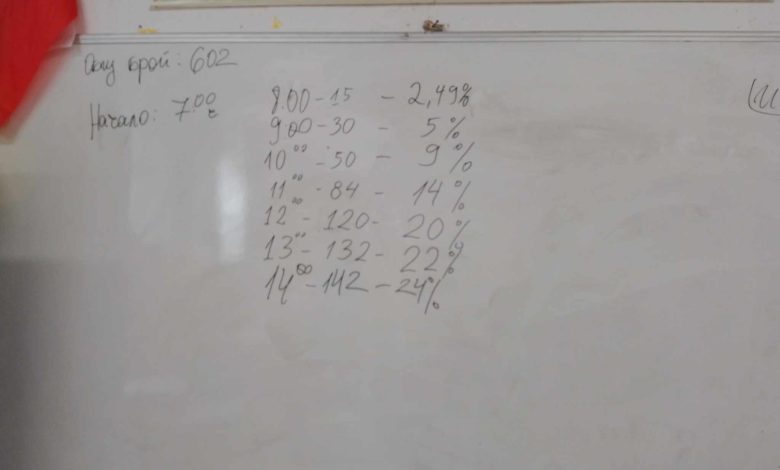 Общ брой: 602
Начало: 7.00 ч
8.00 - 15 - 2,49%
9 00 - 30 - 5%
10 00 - 50 - 9%
11 00 - 84 - 14%
12 00 - 120 - 20%
13 00 - 132 - 22%
14 00 - 142 - 24%